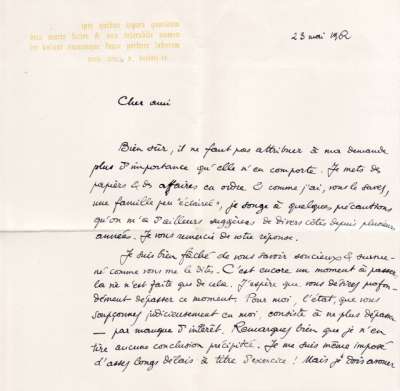 23 mai 1962
Cher ami
Bien sûr, il ne faut pas attribuer à ma demande
plus d'importance qu'elle n'en comporte. Je mets des
papiers & des affaires en ordre & comme j'ai, vous le savez,
une famille peu "éclairée", je songe à quelques précautions
qu'on m'a d'ailleurs suggérées de divers côtés depuis plusieurs
années. Je vous remercie de votre réponse.
Je suis bien fâché de vous savoir soucieux & surme-
né comme vous me le dites. C'est encore un moment à passer,
la vie n'est faite que de cela. J'espère que vous désirez profon-
dément dépasser ce moment. Pour moi, l'état, que vous
soupçonnez judicieusement en moi, consiste à ne plus dépasser
— par manque d'intérêt. Remarquez bien que je n'en
tire aucune conclusion précipitée. Je me suis même imposé
d'assez longs délais à titre d'exercice ! Mais je dois avouer